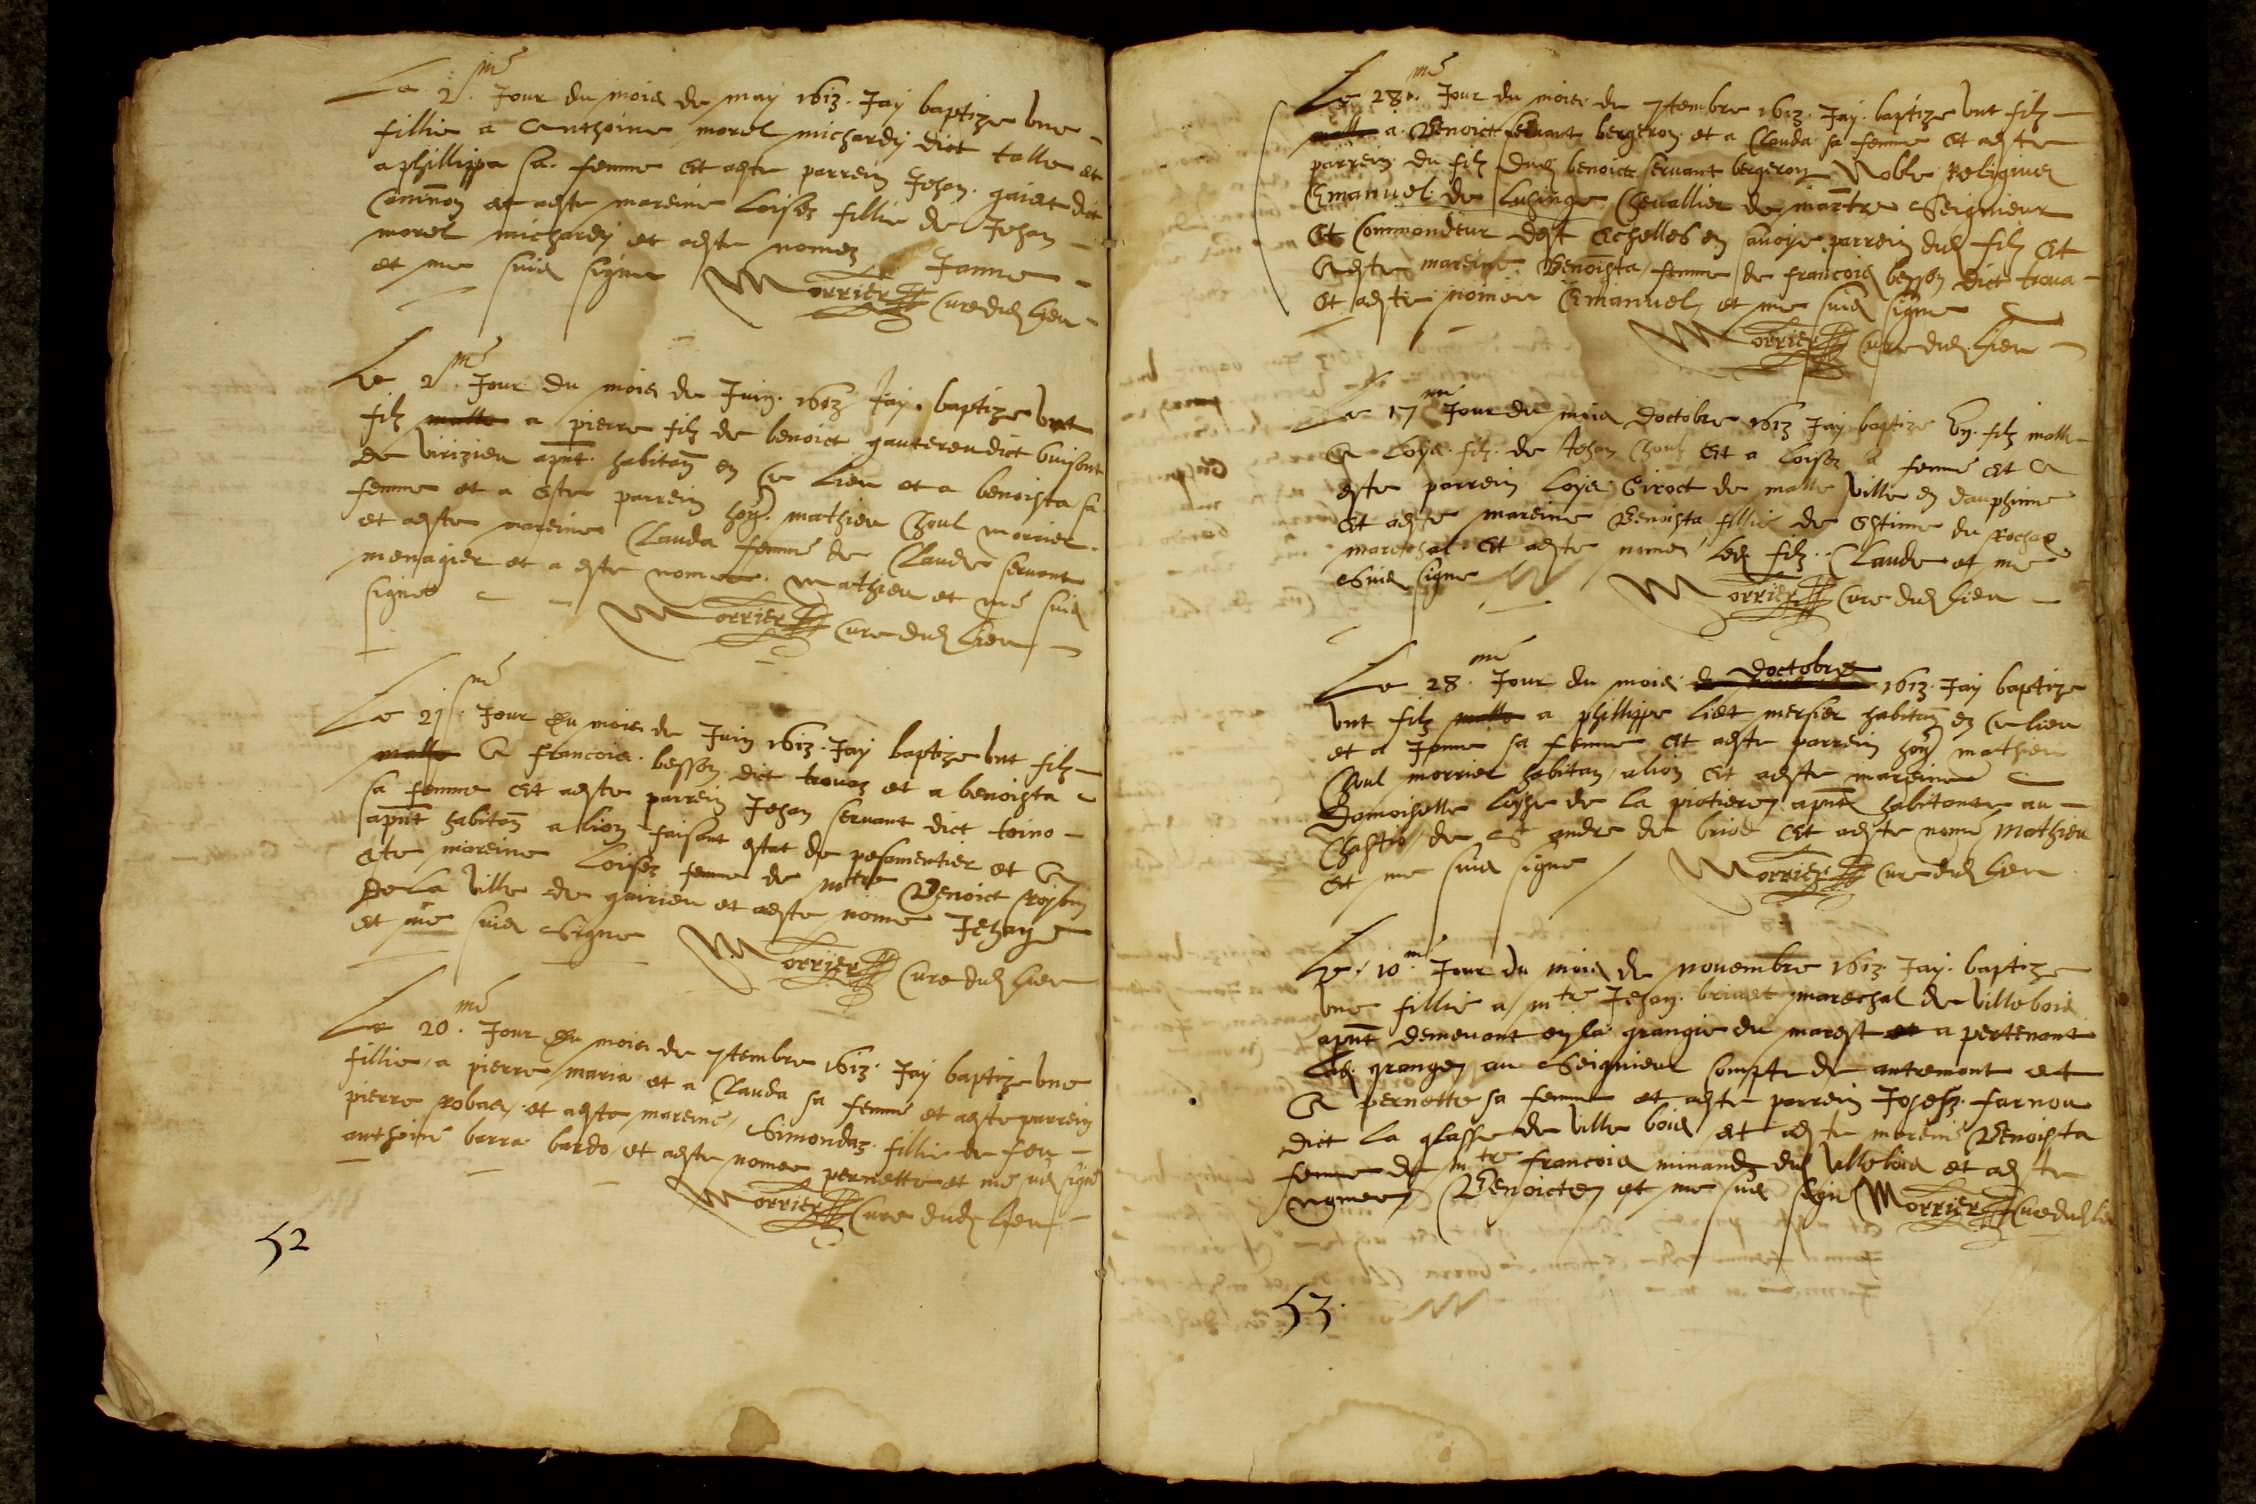 Le 2.me Jour du mois de may 1613. Jay baptize une
fillie a Anthoine morel michardy dict talle et
a phillippa sa femme et aeste parrein Jehan. gaict dit
et aeste mareine Loise fillie de Jehan
morel michardy et aeste nomez Janne
et me suis signe Morrier Cure dud Lieu
Le 2.me Jour du mois de Juin. 1613 Jay. baptize unt
filz malle a pierre filz de benoict gautereu dict buisont
de virizieu apnt. habitant en ce Lieu et a benoista sa
femme et a este parrein hon. mathieu Choul morrier
et aeste mareine Clauda femme de Claude servant
menagier et a este nomee. mathieu et me suis
signe Morrier Cure dud Lieu
Le 21.me Jour du mois de Juin 1613. Jay baptize unt filz
malle A francois. besson dict trouaz et a benoista
sa femme et aeste parrein Jehan servant dict toino
apnt habitant a lion faisant estat de posamentier et A
ete mareine Loise femme de mtre Benoict
De La ville de gairieu et aeste nomme Jehan
et me suis signe Morrier Cure dud Lieu
Le 20.me Jour du mois de 7tembre 1613. Jay baptize une
fillie, a pierre maria et a Clauda sa femme et aeste parrein
pierre robat, et aeste mareine, Simondaz. fillie de feu
anthoine barra bardo, et aeste nomee pernette et me suis signe
Morrier Cure dud Lieu
52
Le 28.me Jour du mois de 7tembre 1613. Jay. baptize unt filz
malle a. Benoict servant bergeron et a Clauda sa femme et aeste
parrein du filz dud benoict servant bergeron Noble Religieux
Emanuel de Lusinge Chevallier de martre Seignieur
et Commandeur dest Echelles en savoye parrein dud filz et
Aeste mareine Benoista, femme de francois besson dict troua
et aeste nomee Emanuel, et me suis signe
Morrier Cure dud Lieu
Le 17me Jour du mois Doctobre 1613 Jay baptize un. filz malle
A Loys. filz. de Jehan Chouf et a Loise sa femme et A
este parrein Loys Giroct de malle ville en dauphine
et aeste mareine Benoista fillie de Estinne du Rochas
marechal et aeste nomez led filz. Claude et me
suis signe Morrier Cure dud Lieu
Le 28.me Jour du mois de Doctobre 1613. Jay baptize
unt filz malle a phillippe liet mersier habitant en ce lieu
et a Janne sa femme et aeste parrein hon mathieu
Choul morrier habitan, a lion et aeste mareine
Damoiselle loyse de la piotiere apnt habitante au
Chasteo de St andre de briod et aeste nome Mathieu
et me suis signe Morrier Cure dud Lieu
Le 10.me Jour du mois de novembre 1613. Jay. baptize
une fillie a mtre Jehan. brivet marechal de villebois
apnt demeurant en la grangie du marest et a pertenant
Lad. grange au Seignieur Compte de antremont et
A pernette sa femme et aeste parrein Josefz. farnou
dict la glasse de ville bois et aeste mareine Benoista
femme de mtre francois minand dud villebois et aeste
nomee Benoicte et me suis signe Morrier Cure dud Lieu
53.